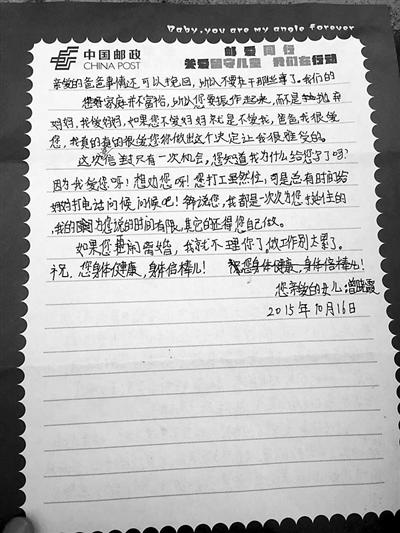 Baby, you are my angle forever
中国邮政
CHINA POST
邮爱同行
关爱留守儿童 我们在行动
亲爱的爸爸事情还可以挽回,所以不要再干那些事了。我们的
家庭并不富裕,所以您要振作起来,而不是抛弃
妈妈,我爱妈妈,如果您不爱妈妈就是不爱我,爸爸我很爱
您,我真的真的很爱您你做出这个决定让我很难受的。
这次只有一次机会,您知道我为什么给您了吗?
因为我爱您呀!想劝您呀!您打工虽然忙,可是总有时间给
妈妈打电话问候问候吧!妈说您,我都是一次次为您
的,我的为您说的时间有限,其它的还得您自己做。
如果您要闹离婚,我就不理你了。做工作别太累了。
祝,您身体健康,身体倍棒儿! 祝您身体健康,身体倍棒儿!
您亲爱的女儿:曾
2015年10月16日